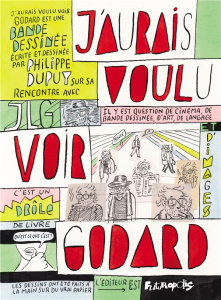 J'AURAIS VOULU VOIR GODARD EST UNE
BANDE
DESSINÉE
ÉCRITE ET DESSINÉE
PAR PHILIPPE
DUPUY SUR SA
RENCONTRE AVEC
JLG
J'AURAIS
VOULU
IL Y EST QUESTION DE CINÉMA, DE
BANDE DESSINÉE, D'ART, DE LANGAGE
D'IMAGES
VOIR
C'EST UN
DRÔLE
DE LIVRE
QU'EST-CE QUE C'EST?
GODARD
LES DESSINS ONT ÉTÉ FAITS À
LA MAIN SUR DU VRAI PAPIER
L'ÉDITEUR EST
Futuropolis